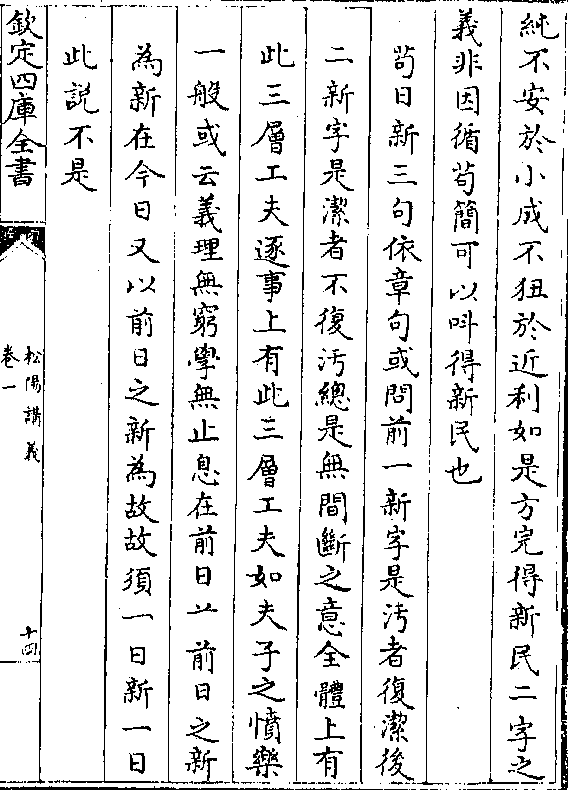 純不安於小成不狃於近利如是方完得新民二字之
義非因循苟簡可以呌得新民也
苟日新三句依章句或問前一新字是汚者復潔後
二新字是潔者不復汚總是無間斷之意全體上有
此三層工夫逐事上有此三層工夫如夫子之憤樂
一般或云義理無窮學無止息在前日以前日之新
為新在今日又以前日之新為故故須一日新一日
此説不是
欽定四庫全書
松陽講義
卷一
十四